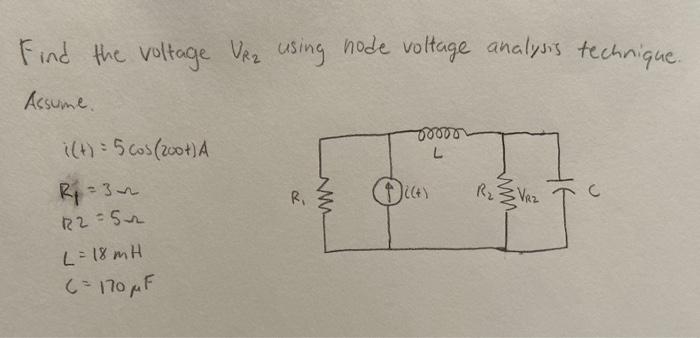 Find the voltage VR2 using node voltage analysis technique.
Assume.
i(t) = 5 cos(200t) A
R1 = 3 Ω
R2 = 5 Ω
L = 18 mH
C = 170 μF
L
R1
i(t)
R2
VR2
C